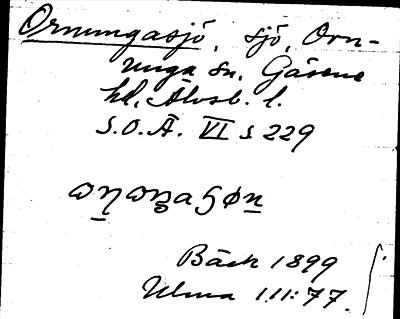 Ornungasjö, sjö, Orn-
unga sn, Gäsene
hd, Älvsb. l.
S.O.Ä. VI s 229
Bäck 1899
Ulma 111:77.